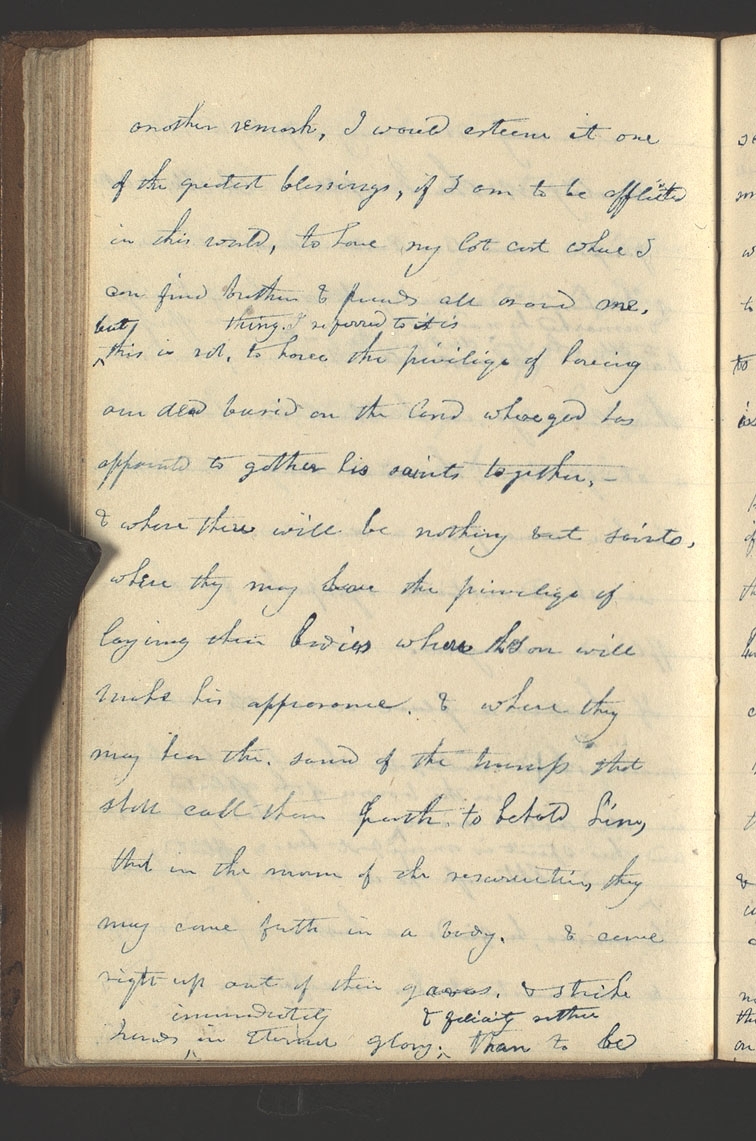 another remark, I would esteem it one
of the greatest blessings, if I am to be afflicted
in this world, to have my lot cast where I
can find brothers & friends all around me,
but thing I referred to it is
this is not, to have the privilige of haveing
our dead buried on the land where god has
appointed to gather his saints together,—
& where there will be nothing but saints,
where they may have the privelige of
laying their bodies where the Son will
make his appearance. & where they
may hear the sound of the trump that
shall call them forth to behold him,
that in the morn of the resurrection, they
may come forth in a body. & come
right up out of their graves. & strike
immediately & felicity rather
hands in eternal glory. than to be